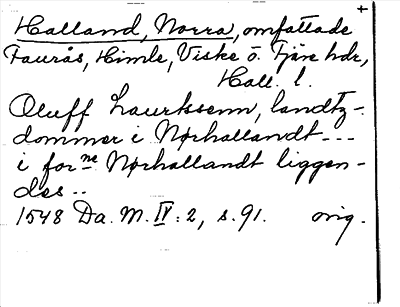 +
Halland, Norra, omfattade
Faurås, Himle, Viske o. Fjäre hdr,
Hall. l.
Oluff Laurkssenn, landtz-
dommer i Nørhallandt ---
i for ne Nørhallandt liggen-
des --
1548 Da. M. IV: 2, s. 91. orig.